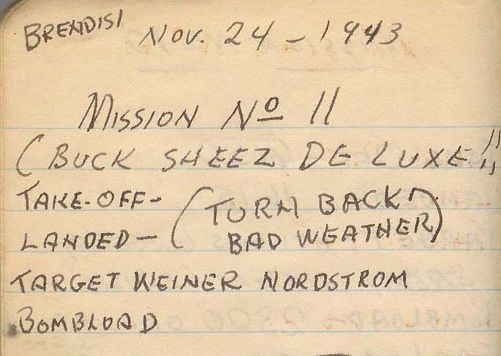 BRENDISI NOV. 24 - 1943
MISSION No 11
(BUCK SHEEZ DE LUXE"
TAKE-OFF- (TURN BACK
LANDED- BAD WEATHER)
TARGET WEINER NORDSTROM
BOMBLOAD